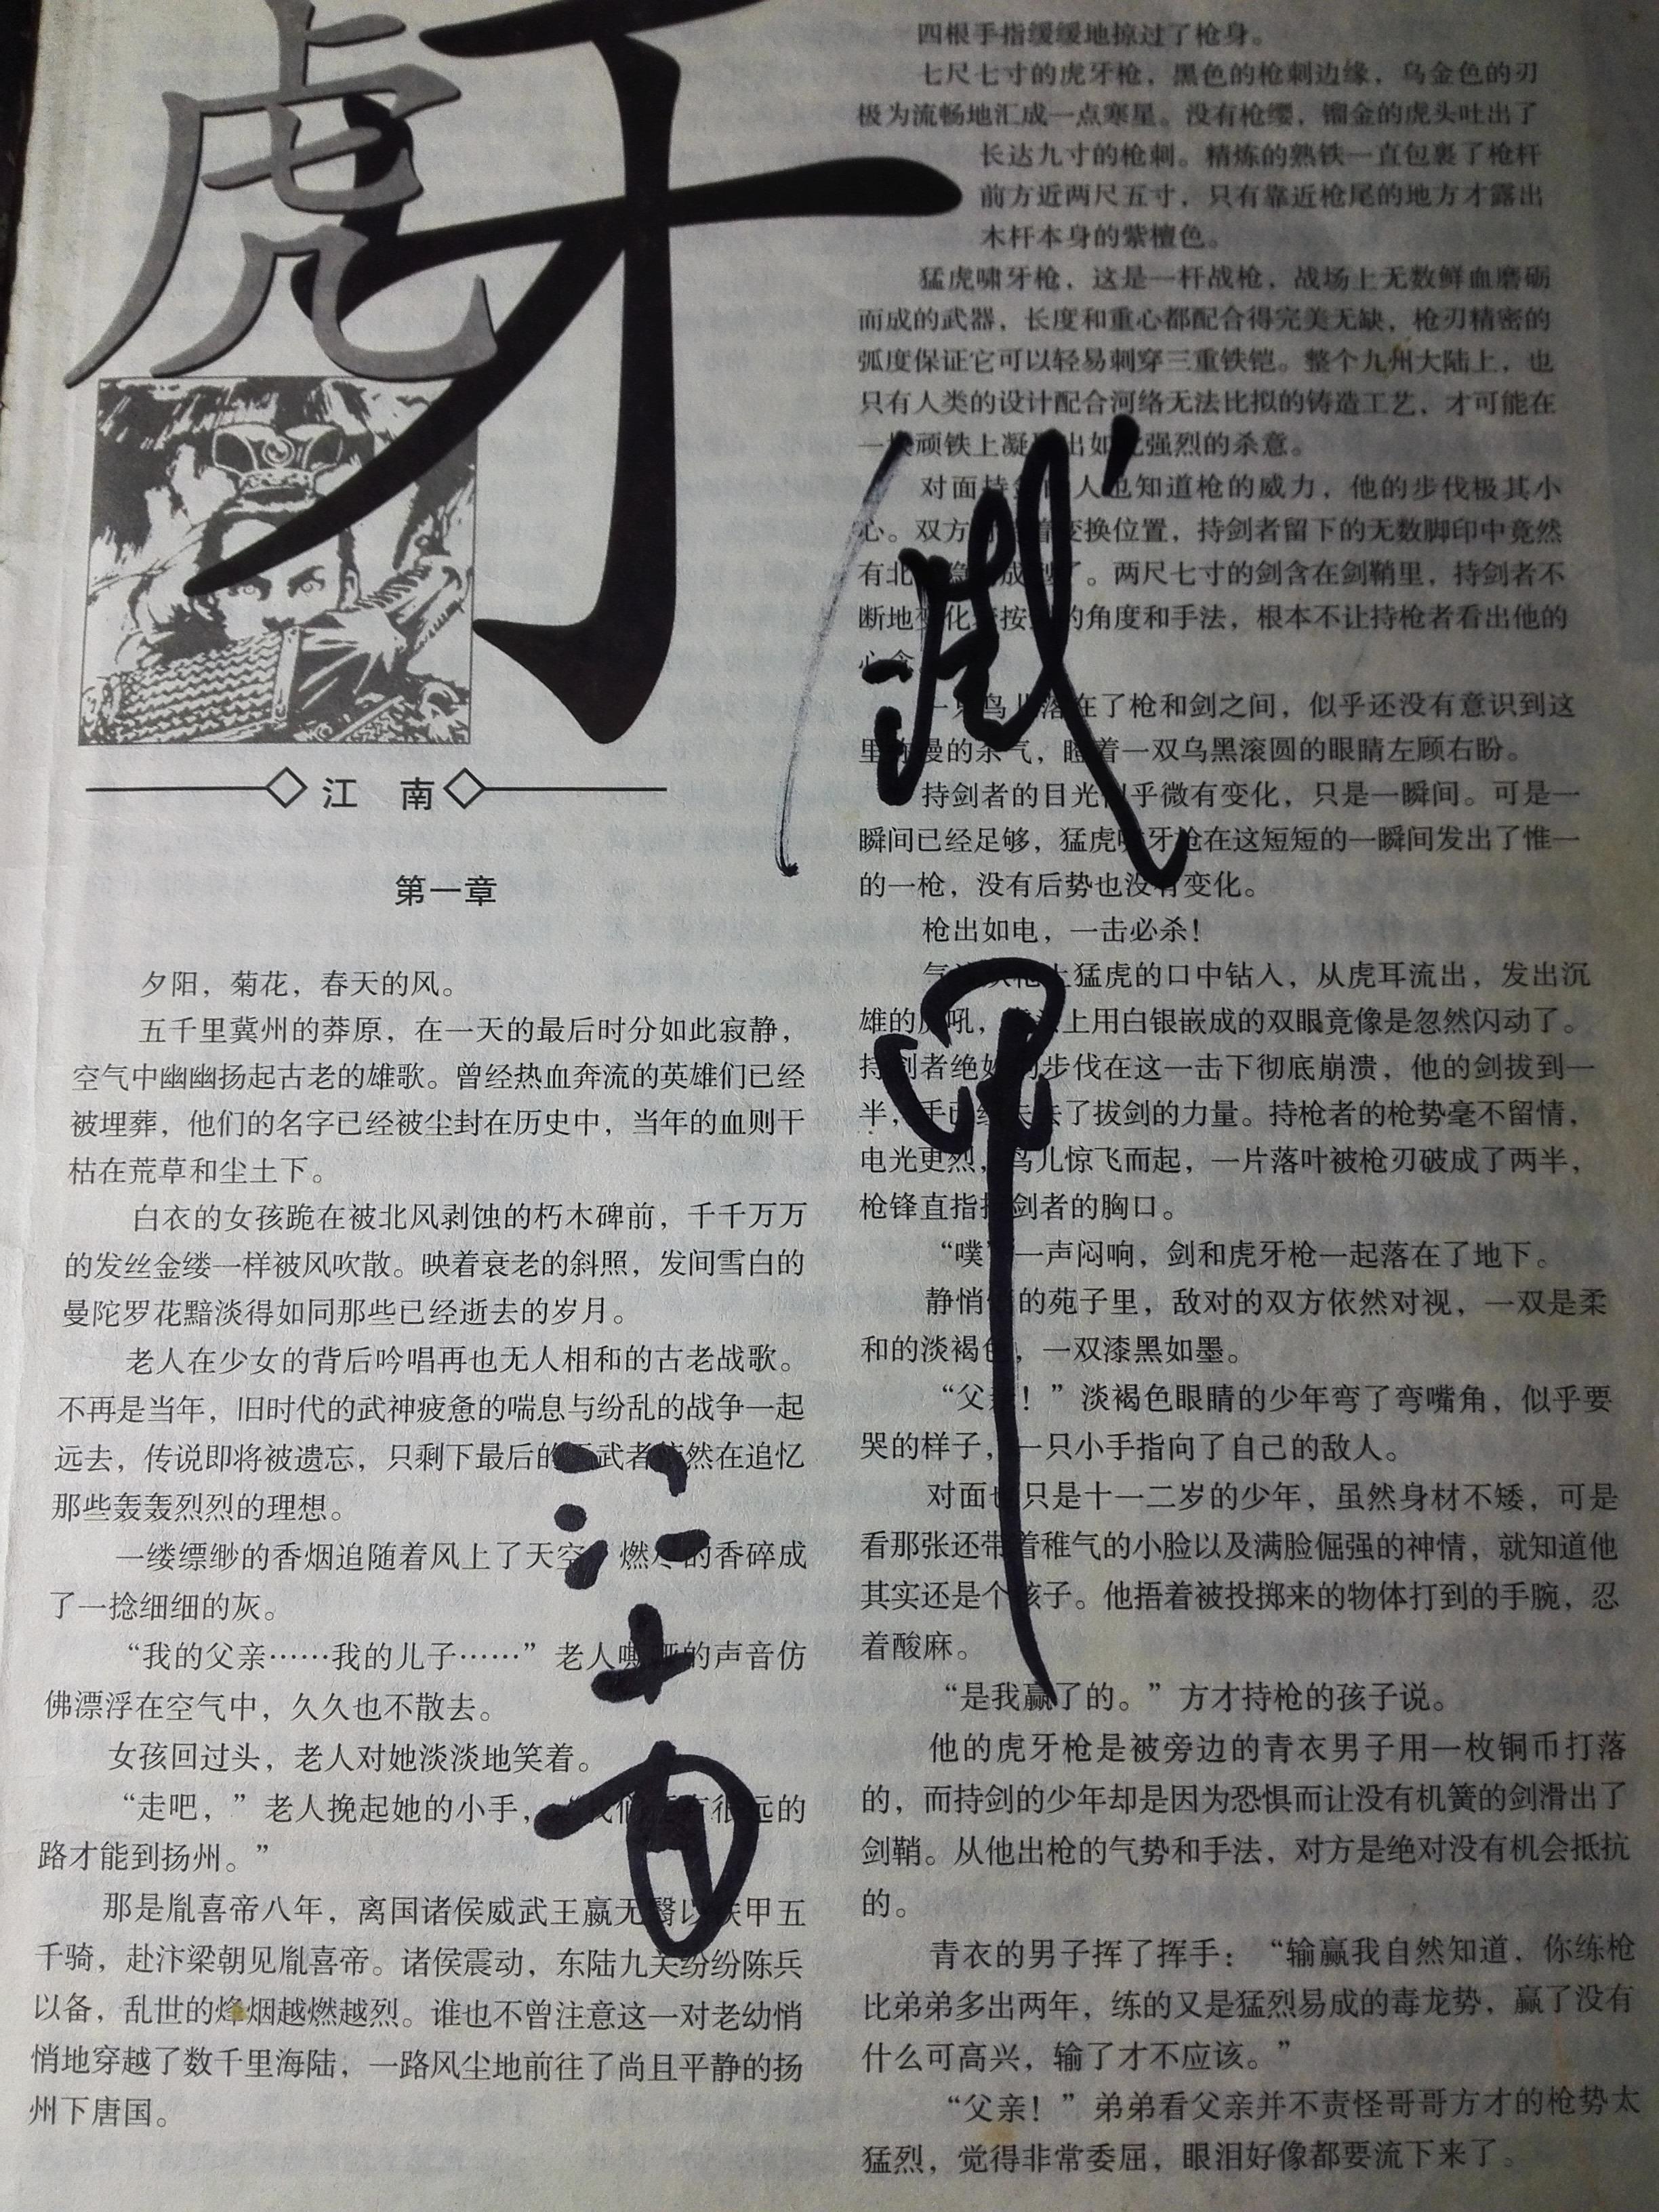 虎牙
江 南
第一章
夕阳，菊花，春天的风。
五千里冀州的莽原，在一天的最后时分如此寂静，
空气中幽幽扬起古老的雄歌。曾经热血奔流的英雄们已经
被埋葬，他们的名字已经被尘封在历史中，当年的血则干
枯在荒草和尘土下。
白衣的女孩跪在被北风剥蚀的朽木碑前，千千万万
的发丝金缕一样被风吹散。映着衰老的斜照，发间雪白的
曼陀罗花黯淡得如同那些已经逝去的岁月。
老人在少女的背后吟唱再也无人相和的古老战歌。
不再是当年，旧时代的武神疲惫的喘息与纷乱的战争一起
远去，传说即将被遗忘，只剩下最后的武者依然在追忆
那些轰轰烈烈的理想。
一缕缥缈的香烟追随着风上了天空，燃尽的香碎成
了一捻细细的灰。
“我的父亲……我的儿子……”老人的声音仿
佛漂浮在空气中，久久也不散去。
女孩回过头，老人对她淡淡地笑着。
“走吧，”老人挽起她的小手，“我们还有很远的
路才能到扬州。”
那是胤喜帝八年，离国诸侯威武王嬴无翳以铁甲五
千骑，赴汴梁朝见胤喜帝。诸侯震动，东陆九关纷纷陈兵
以备，乱世的烽烟越燃越烈。谁也不曾注意这一对老幼悄
悄地穿越了数千里海陆，一路风尘地前往了尚且平静的扬
州下唐国。
四根手指缓缓地掠过了枪身。
七尺七寸的虎牙枪，黑色的枪刺边缘，乌金色的刃
极为流畅地汇成一点寒星。没有枪缨，镏金的虎头吐出了
长达九寸的枪刺。精炼的熟铁一直包裹了枪杆
前方近两尺五寸，只有靠近枪尾的地方才露出
木杆本身的紫檀色。
猛虎啸牙枪，这是一杆战枪，战场上无数鲜血磨砺
而成的武器，长度和重心都配合得完美无缺，枪刃精密的
弧度保证它可以轻易刺穿三重铁铠。整个九州大陆上，也
只有人类的设计配合河络无法比拟的铸造工艺，才可能在
一块顽铁上凝聚出如此强烈的杀意。
对面持剑的人也知道枪的威力，他的步伐极其小
心。双方变换位置，持剑者留下的无数脚印中竟然
有北成型了。两尺七寸的剑含在剑鞘里，持剑者不
断地变化着按剑的角度和手法，根本不让持枪者看出他的
心念
一只鸟儿落在了枪和剑之间，似乎还没有意识到这
里弥漫的杀气，瞪着一双乌黑滚圆的眼睛左顾右盼。
持剑者的目光似乎微有变化，只是一瞬间。可是一
瞬间已经足够，猛虎啸牙枪在这短短的一瞬间发出了惟一
的一枪，没有后势也没有变化。
枪出如电，一击必杀！
气流从枪上猛虎的口中钻入，从虎耳流出，发出沉
雄的虎吼，上用白银嵌成的双眼竟像是忽然闪动了。
持剑者绝妙的步伐在这一击下彻底崩溃，他的剑拔到一
半，手已经失去了拔剑的力量。持枪者的枪势毫不留情，
电光更烈，鸟儿惊飞而起，一片落叶被枪刃破成了两半，
枪锋直指持剑者的胸口。
“噗”一声闷响，剑和虎牙枪一起落在了地下。
静悄悄的苑子里，敌对的双方依然对视，一双是柔
和的淡褐色，一双漆黑如墨。
“父亲！”淡褐色眼睛的少年弯了弯嘴角，似乎要
哭的样子，一只小手指向了自己的敌人。
对面也只是十一二岁的少年，虽然身材不矮，可是
看那张还带着稚气的小脸以及满脸倔强的神情，就知道他
其实还是个孩子。他捂着被投掷来的物体打到的手腕，忍
着酸麻。
“是我赢了的。”方才持枪的孩子说。
他的虎牙枪是被旁边的青衣男子用一枚铜币打落
的，而持剑的少年却是因为恐惧而让没有机簧的剑滑出了
剑鞘。从他出枪的气势和手法，对方是绝对没有机会抵抗
的。
青衣的男子挥了挥手：“输赢我自然知道，你练枪
比弟弟多出两年，练的又是猛烈易成的毒龙势，赢了没有
什么可高兴，输了才不应该。”
“父亲！”弟弟看父亲并不责怪哥哥方才的枪势太
猛烈，觉得非常委屈，眼泪好像都要流下来了。
江南